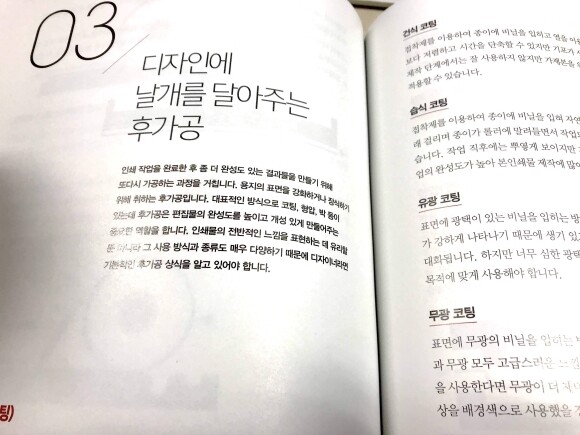 03
디자인에
날개를 달아주는
후가공
인쇄 작업을 완료한 후 좀 더 완성도 있는 결과물을 만들기 위해
또다시 가공하는 과정을 거칩니다. 용지의 표면을 강화하거나 장식하기
위해 취하는 후가공입니다. 대표적인 방식으로 코팅, 형압, 박 등이
있는데 후가공은 편집물의 완성도를 높이고 개성 있게 만들어주는
중요한 역할을 합니다. 인쇄물의 전반적인 느낌을 표현하는 데 유리할
뿐 아니라 그 사용 방식과 종류도 매우 다양하기 때문에 디자이너라면
기본적인 후가공 상식을 알고 있어야 합니다.
팅)
건식 코팅
접착제를 이용하여 종이에 비닐을 입히고 열을
보다 저렴하고 시간을 단축할 수 있지만 기포가
제작 단계에서는 잘 사용하지 않지만 가제본을
적용할 수 있습니다.
습식 코팅
접착제를 이용하여 종이에 비닐을 입혀 자연
래 걸리며 종이가 롤러에 말려들면서 작업
습니다. 작업 직후에는 뿌옇게 보이지만
업의 완성도가 높아 본인쇄물 제작에 많이
유광 코팅
표면에 광택이 있는 비닐을 입히는 방
가 강하게 나타나기 때문에 생기 있
대화됩니다. 하지만 너무 심한 광택
목적에 맞게 사용해야 합니다.
무광 코팅
표면에 무광의 비닐을 입히는
과 무광 모두 고급스러운 느낌
을 사용한다면 무광이 더
상을 배경색으로 사용했을